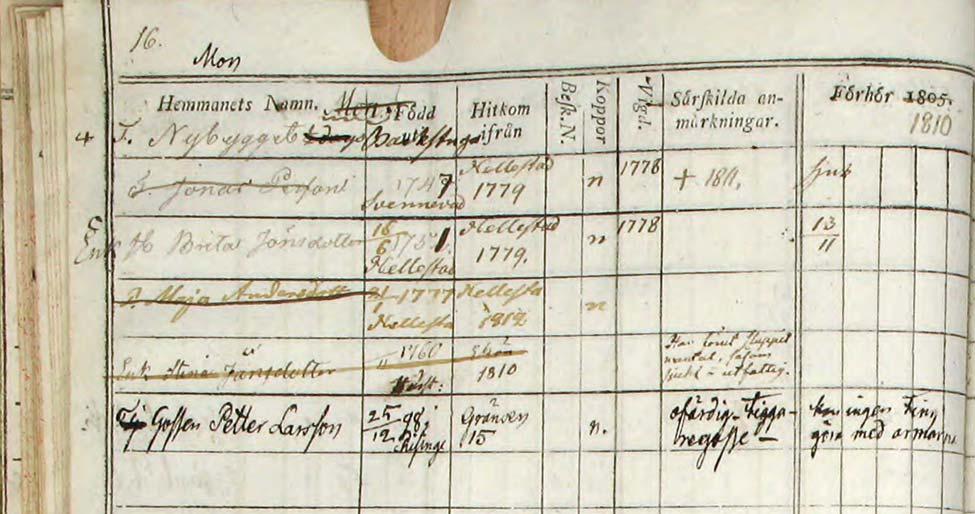 16.
Mon
Hemmanets Namn. Född Hitkom ifrån Besk.N. Koppor Wigd. Särskilda anmärkningar. Förhör 1805. 1810
+ T. Nybygget Backstuga
Jonas Persson 1747 Svennevad Hellestad 1779 n 1778 + 1811. sjuk
Enk H Brita Jönsdotter 16/6 1751 Hellestad Hellestad 1779. n 1778 13/11
P. Maja Andersdott 21/1 1777 Hellesta Hellesta 1812 n
Enk Stina Jansdotter 1760 Skön 1810
sjukl - utfattig.
Gossen Petter Larsson 25/12 98 Risinge Gränsen 15 n. ofärdig - Tiggaregosse - kan ingen Ting göra med armarna